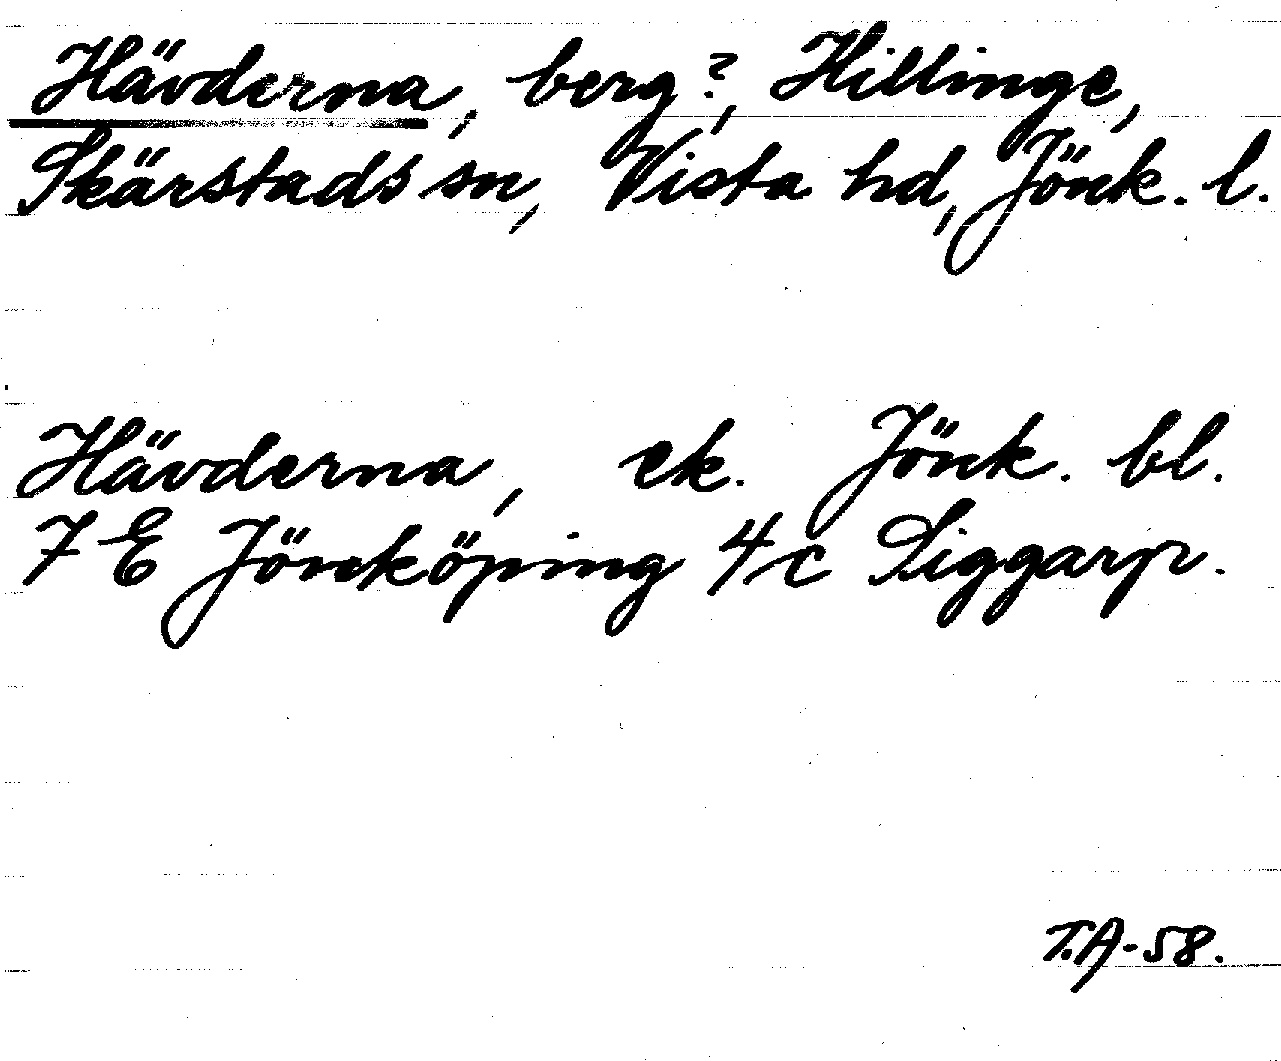 Hävderna, berg?, Hillinge,
Skärstads sn, Vista hd, Jönk. l.
Hävderna, ek. Jönk. bl.
7 E Jönköping 4c Siggarp.
T.A-58.